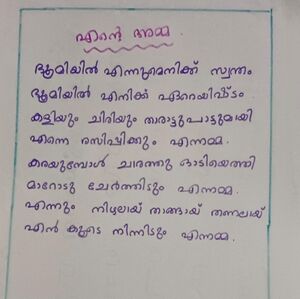 എന്റെ അമ്മ.
ഭൂമിയിൽ എന്നുമെനിക്ക് സ്വന്തം
ഭൂമിയിൽ എനിക്ക് ഏറെയിഷ്ടം
കളിയും ചിരിയും താരാട്ടുപാട്ടുമായി
എന്നെ രസിപ്പിക്കും എന്നമ്മ.
കരയുമ്പോൾ ചാരത്തു ഓടിയെത്തി
മാറോടു ചേർത്തിടും എന്നമ്മ.
എന്നും നിഴലായ് താങ്ങായ് തണലായ്
എൻ കൂടെ നിന്നിടും എന്നമ്മ.